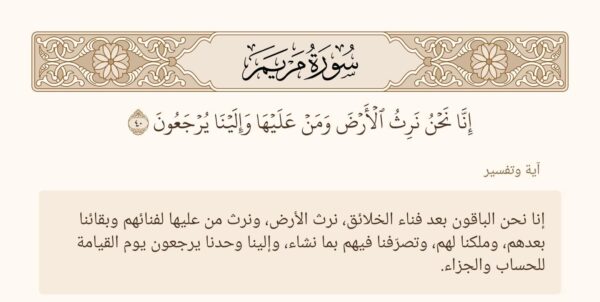 سُورَةُ مَرْيَمَ
إِنَّا نَحْنُ نَرِثُ ٱلْأَرْضَ وَمَنْ عَلَيْهَا وَإِلَيْنَا يُرْجَعُونَ ٤٠
آية وتفسير
إنا نحن الباقون بعد فناء الخلائق، نرث الأرض، ونرث من عليها لفنائهم وبقائنا
بعدهم، وملكنا لهم، وتصرّفنا فيهم بما نشاء، وإلينا وحدنا يرجعون يوم القيامة
للحساب والجزاء.